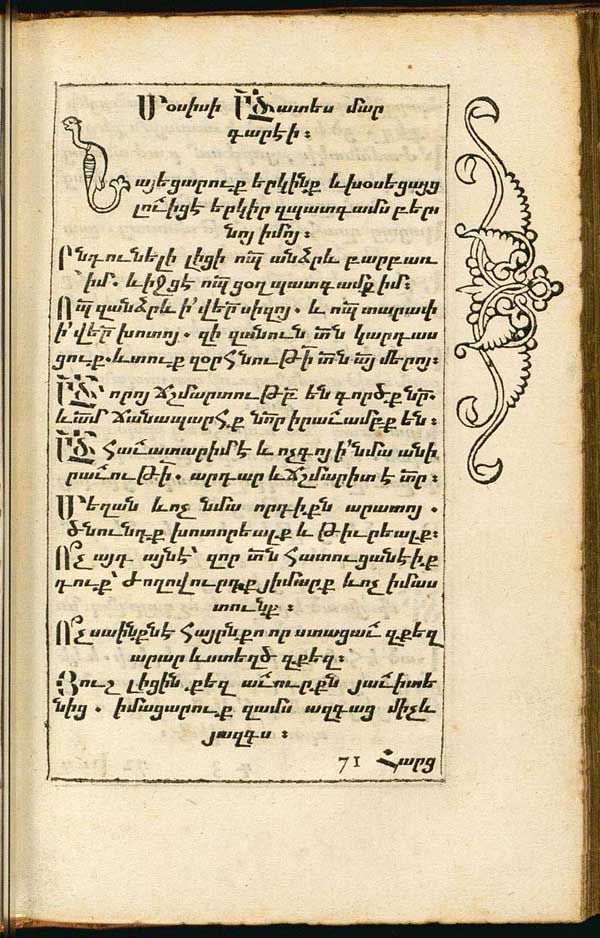 Մօսիսի Ա՟Ծատես մար
գարէի։
Նայեցարուք երկինք և խօսեցայց
լուիցէ երկիր զպատգամս բերա
նոյ իմոյ։
Ընդունելի լիցի ո՟պ անձրև բարբառ
իմ. և իջցէ ո՟պ ցօղ պատգամք իմ։
Ո՟պ զանձրև ի՛ վ՟ր սիզոյ. և ո՟պ տարափ
ի՛ վ՟ր խոտոյ. զի զանուն տ՟ն կարդաս
ցուք. և տուք զօրհնութի՟ տ՟ն ա՟յ մերոյ։
Ա՟Ծ որոյ ճշմարտութբ՟ են գործք նր՟.
և ա՟մ ճանապարհք նո՟ր իրաւամբք են։
Ա՟Ծ հաւատարիմ է և ոչ գոյ ի՛ նմա անի
րաւութի՟. արդար և ճշմարիտ է տ՟ր։
Մեղան և ոչ նմա որդիքն արատոյ.
ծնունդք խոտորեալք և թիւրեալք։
Ո՞չ այդ այնէ՝ զոր տ՟ն հատուցանէիք
դուք՝ ժողովուրդք յիմարք և ոչ իմաս
տունք։
Ո՞չ սա ինքն է հայրն քո որ ստացաւ զքեզ
արար և ստեղծ զքեզ։
Յուշ լիցին քեզ աւուրքն յաւիտե
նից. իմացարուք զամս ազգաց միջև
յազգս։
71 Հարց